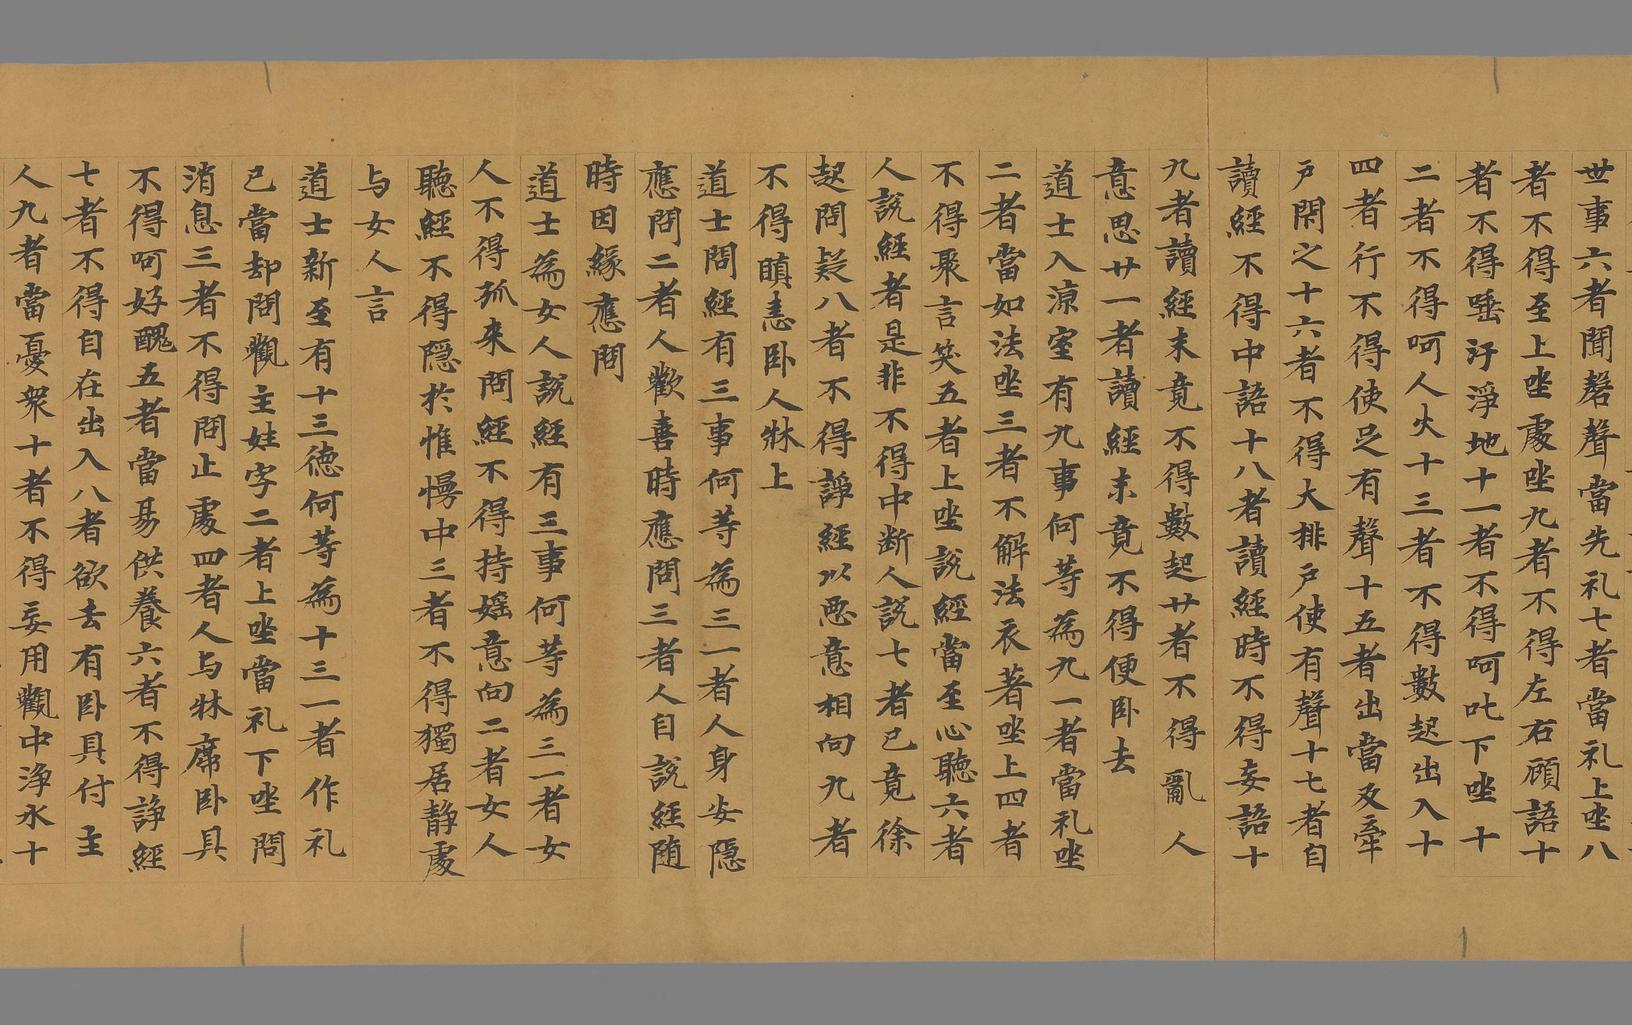 世事六者聞磬聲當先礼七者當礼上坐八
者不得至上坐處坐九者不得左右顧語十
者不得唾汙淨地十一者不得呵叱下坐十
二者不得呵人火十三者不得數起出入十
四者行不得使足有聲十五者出當及牽
戶閇之十六者不得大排戶使有聲十七者自
讀經不得中語十八者讀經時不得妄語十
九者讀經未竟不得數起廿者不得亂人
意思廿一者讀經未竟不得便卧去
道士入凉室有九事何等為九一者當礼坐
二者當如法坐三者不解法衣著坐上四者
不得聚言笑五者上坐說經當至心聽六者
人說經者是非不得中断人說七者已竟徐
起問疑八者不得諍經以惡意相向九者
不得瞋恚卧人牀上
道士問經有三事何等為三一者人身安隱
應問二者人歡喜時應問三者人自說經随
時因緣應問
道士為女人說經有三事何等為三一者女
人不得孤来問經不得持婬意向二者女人
聽經不得隱於惟幔中三者不得獨居靜處
与女人言
道士新至有十三德何等為十三一者作礼
已當却問觀主姓字二者上坐當礼下坐問
消息三者不得問止處四者人与牀席卧具
不得呵好醜五者當易供養六者不得諍經
七者不得自在出入八者欲去有卧具付主
人九者當憂衆十者不得妄用觀中淨水十